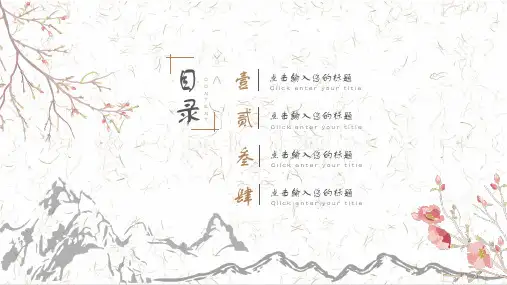 目录
CONTENT
壹
点击输入您的标题
Click enter your title
贰
点击输入您的标题
Click enter your title
叁
点击输入您的标题
Click enter your title
肆
点击输入您的标题
Click enter your title